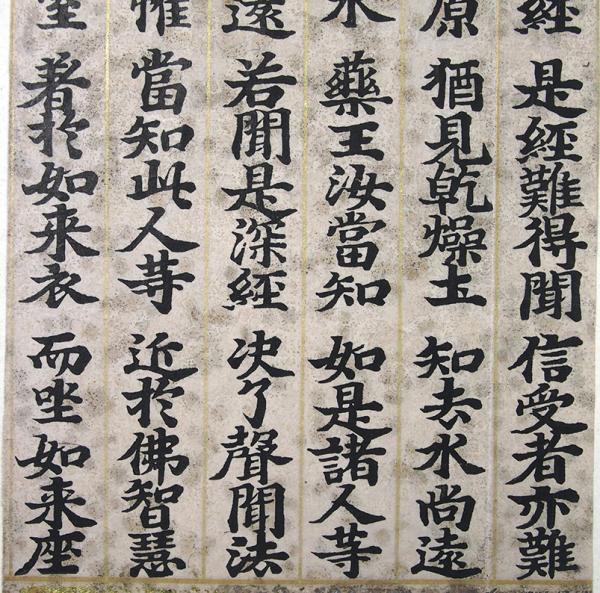 經 是經難得聞 信受者亦難
原 猶見乾燥土 知去水尚遠
水 藥王汝當知 如是諸人等
遠 若聞是深經 决了聲聞法
惟 當知此人等 近於佛智慧
座 著於如来衣 而坐如来座